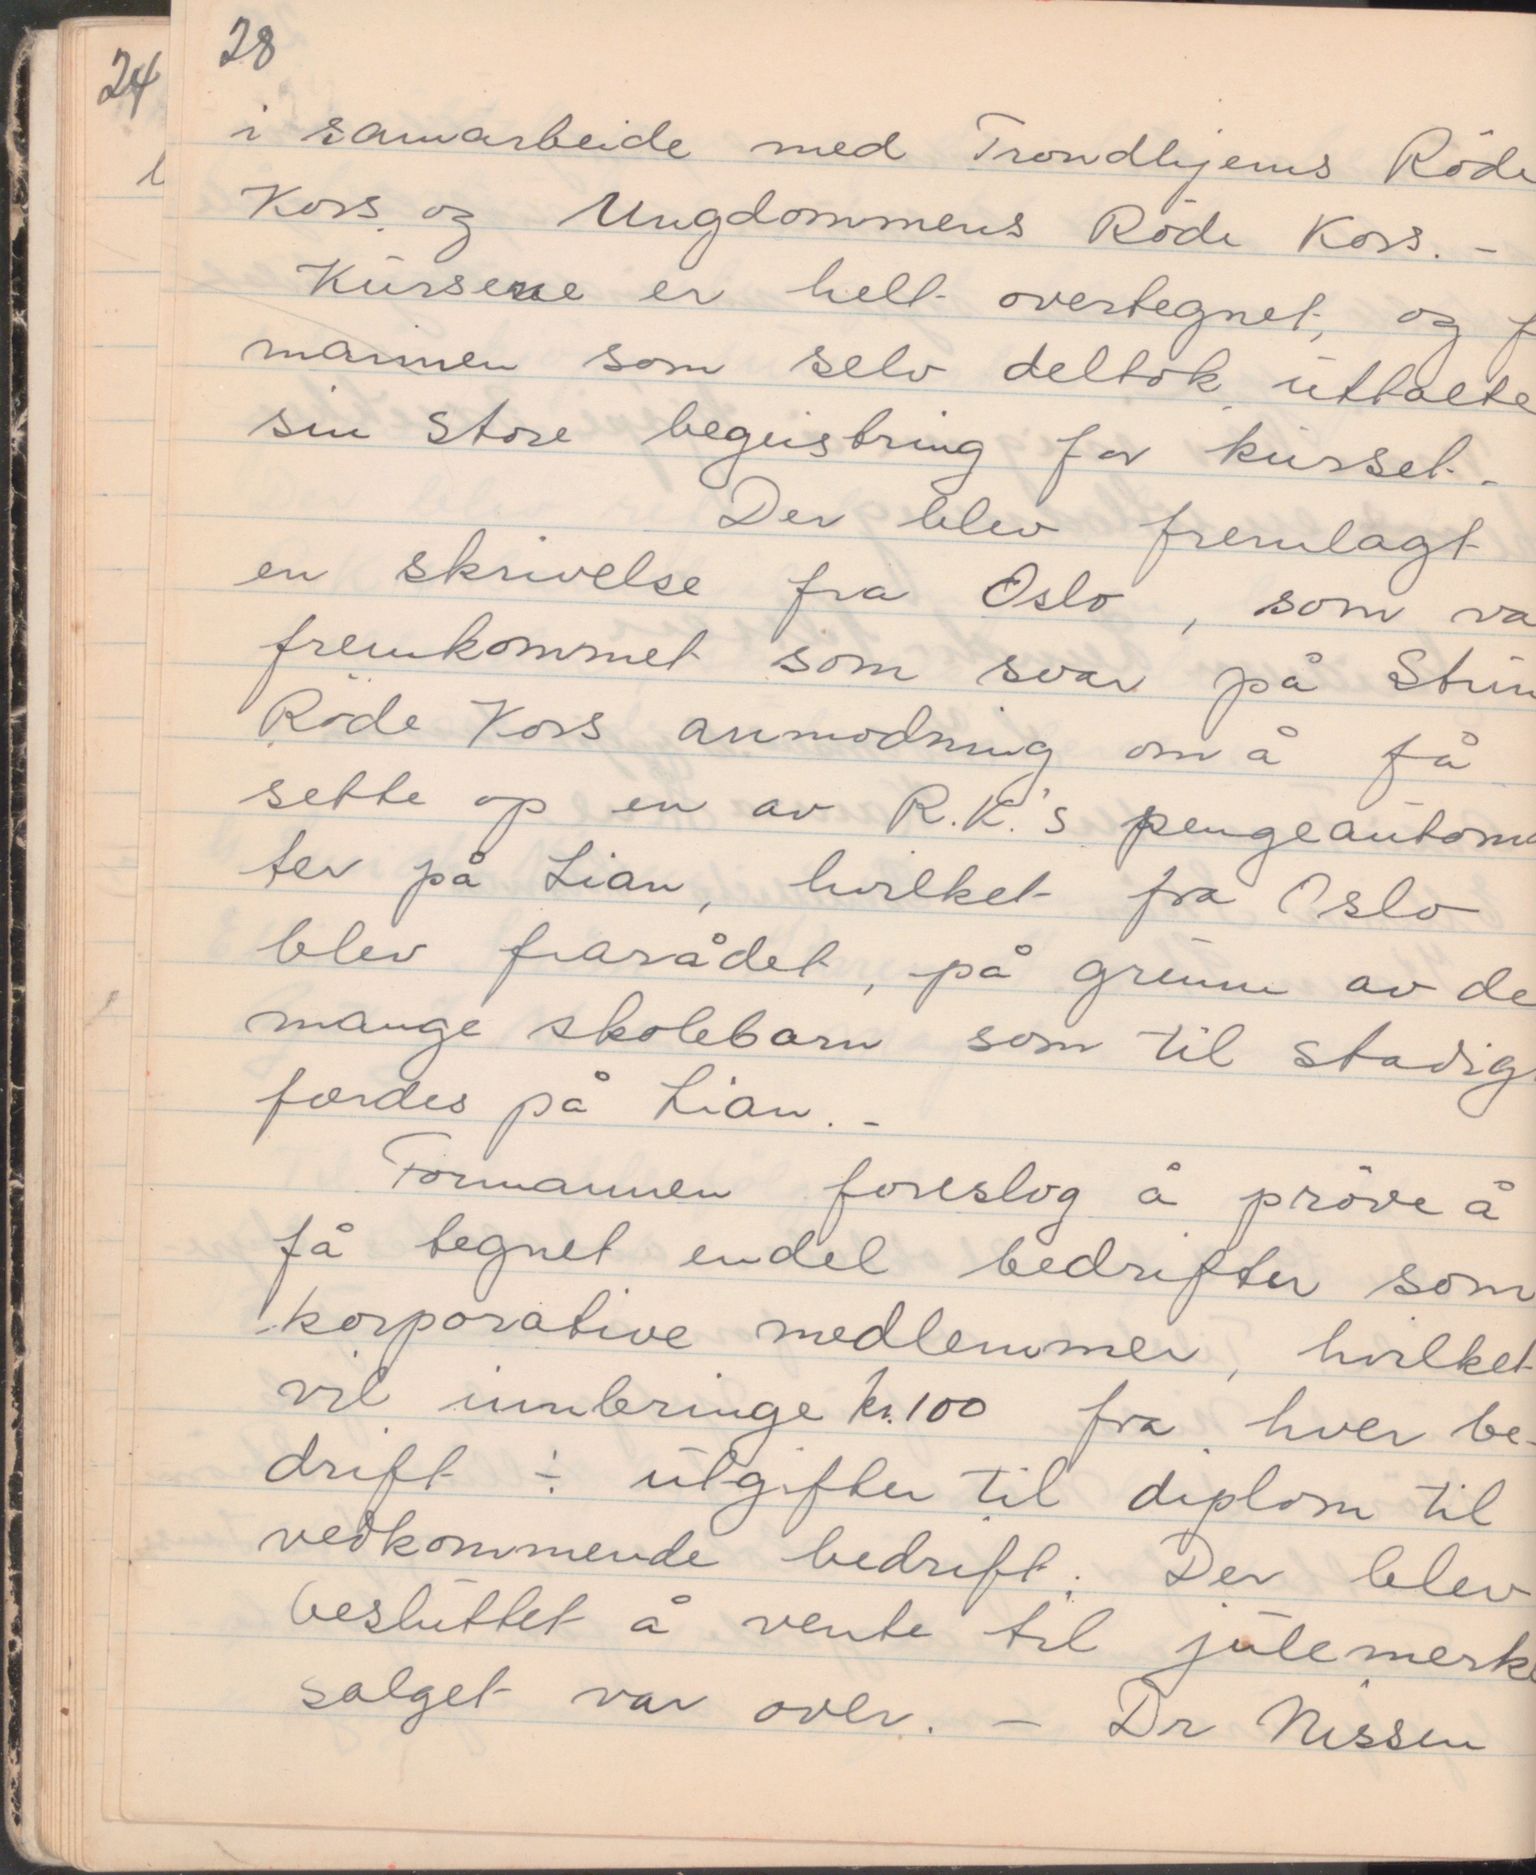 28
24
i samarbeide med Trondhjems Röde
Kors og Ungdommens Röde Kors. –
Kursene er helt overtegnet, og f
mannen som selv deltok, uttalte
sin store begeistring for kurset.
Der blev fremlagt
en skrivelse fra Oslo, som va
fremkommet som svar på Strin
Röde Kors anmodning om å få
sette op en av R.K.'s pengeautoma
ter på Lian, hvilket fra Oslo
blev frarådet, på grunn av de
mange skolebarn som til stadig
ferdes på Lian. –
Formannen foreslog å pröve å
få tegnet endel bedrifter som
korporative medlemmer, hvilket
vil innbringe kr. 100 fra hver be-
drift ÷ utgifter til diplom til
vedkommende bedrift. Der blev
besluttet å vente til julemerke
salget var over. – Dr Nissen